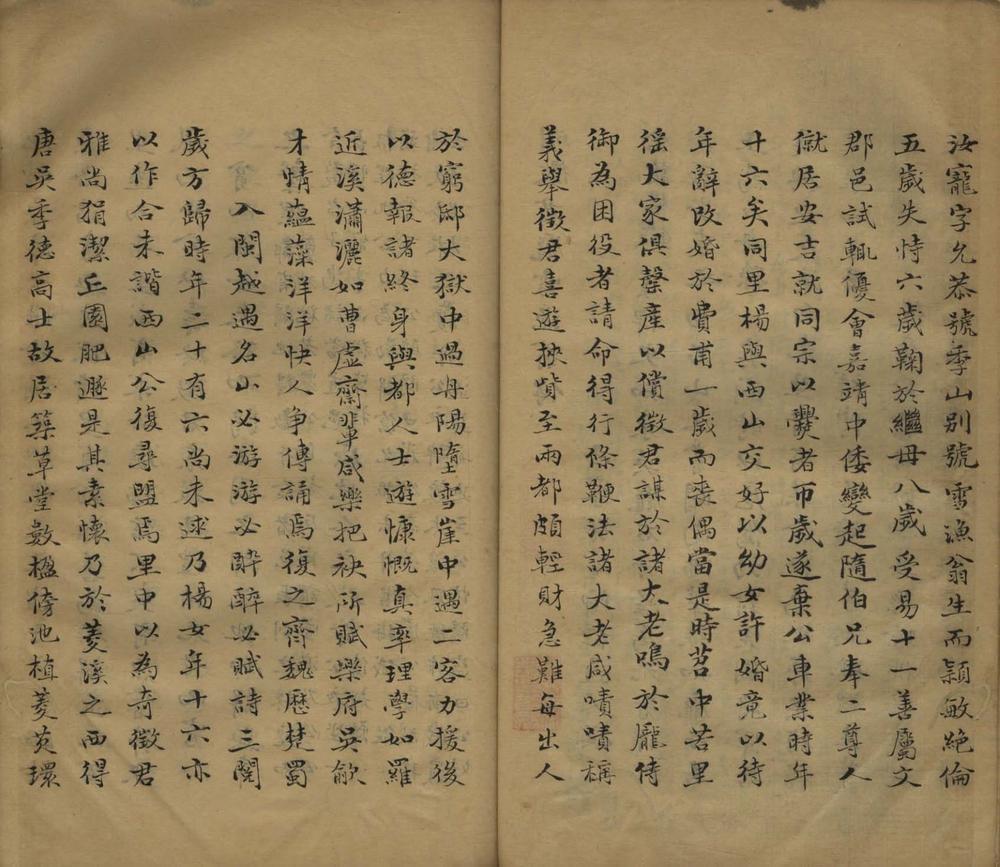 汝寵字允恭號季山别號雪漁翁生而穎敏絕倫
五歲失恃六歲鞠於繼母八歲受易十一善屬文
郡邑試輒優會嘉靖中倭變起隨伯兄奉二尊人
僦居安吉就同宗以爨者帀歲遂棄公車業時年
十六矣同里楊與西山交好以幼女許婚竟以待
年辭改婚於費甫一歲而喪偶當是時苕中苦里
徭大家俱罄產以償徵君謀於諸大老鳴於龐侍
御為困役者請命得行條鞭法諸大老咸嘖嘖稱
義舉徵君喜遊挾貲至兩都頗輕財急難每出人
於窮邸大獄中過丹陽墮雪崖中遇二客力援後
以德報諸終身與都人士遊慷慨真率理學如羅
近溪瀟灑如曹虛齋軰咸樂把袂所賦樂府吳歈
才情蘊藻洋洋快人争傳誦焉復之齊魏歷楚蜀
入閩越遇名山必游游必醉醉必賦詩三閱
歲方歸時年二十有六尚未逑乃楊女年十六亦
以作合未諧西山公復尋盟焉里中以為奇徵君
雅尚狷潔丘園肥遯是其素懷乃於菱溪之西得
唐吳季德高士故居築草堂數楹傍池植菱芡環